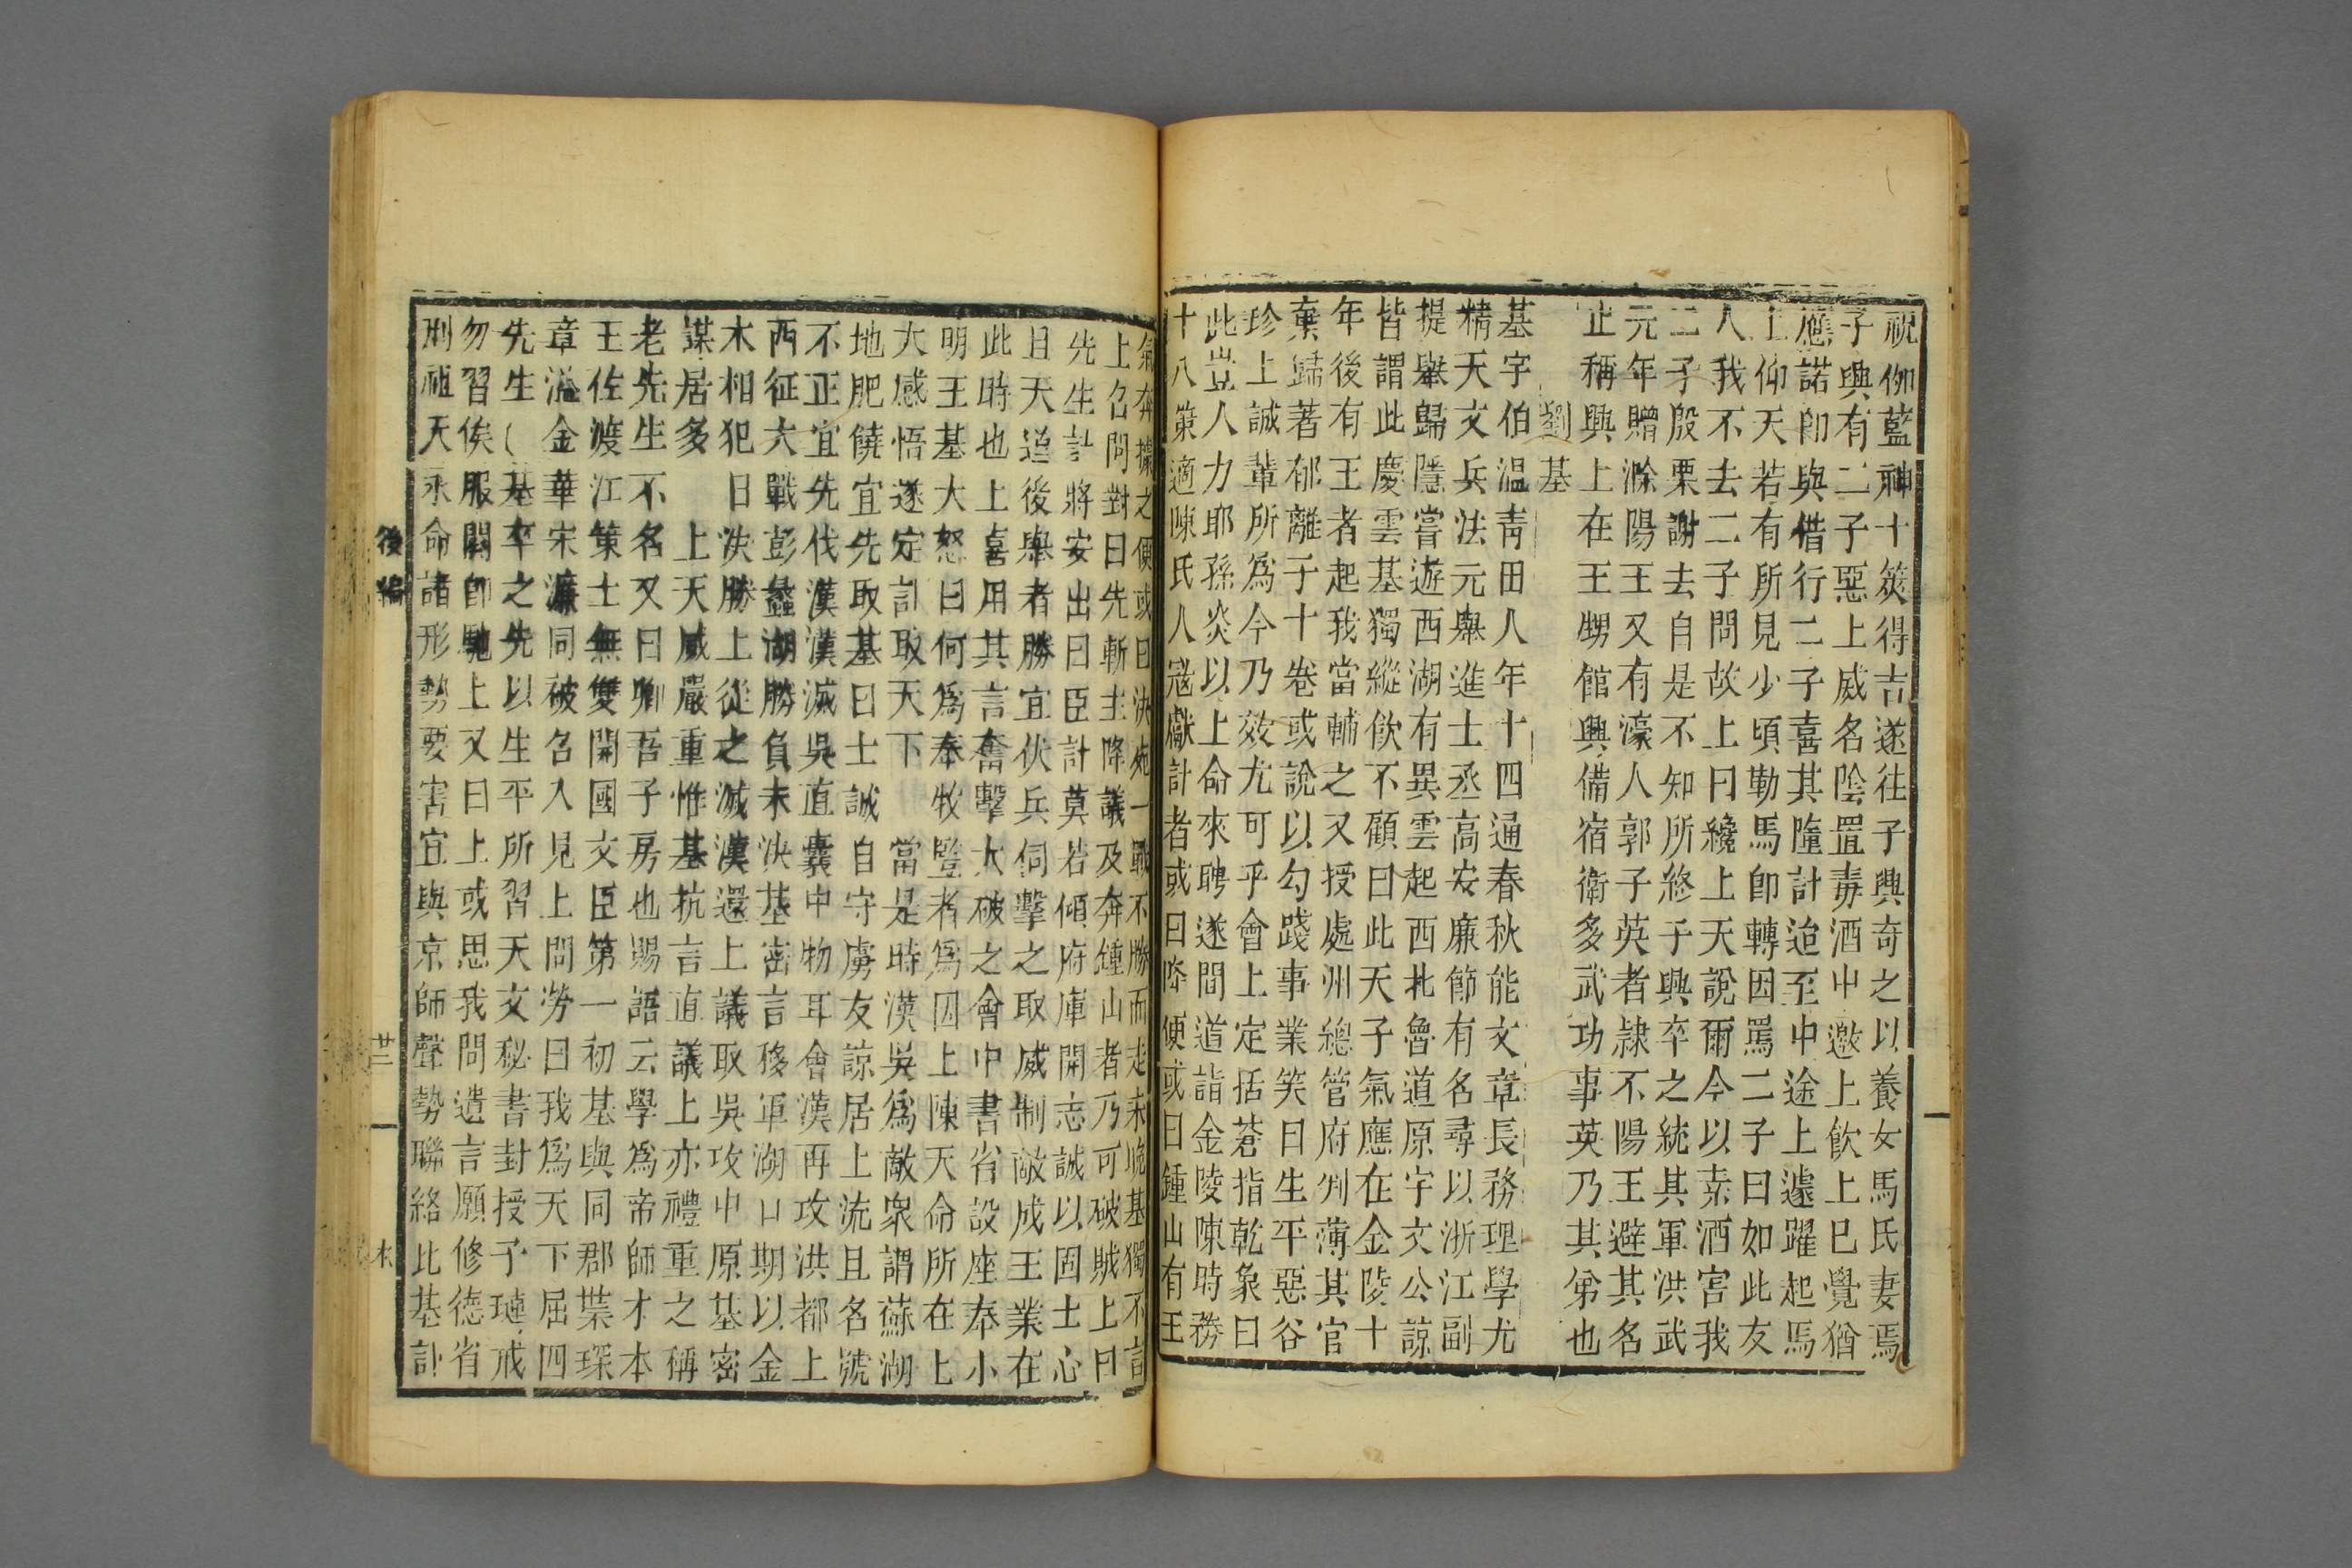 祝伽藍神十筊得吉遂往子興奇之以養女馬氏妻焉
子興有二子惡上威名陰置毒酒中邀上飲上巳覺猶
應諾卽與借行二子喜其墮計迨至中途上遽躍起馬
上仰天若有所見少頃勒馬卽轉因罵二子曰如此友
人我不去二子問故上曰纔上天說爾今以素酒害我
二子殷栗謝去自是不知所終子興卒之統其軍洪武
元年贈滁陽王又有濠人郭子英者隷不陽王避其名
止稱興上在王甥館興備宿衛多武功事英乃其弟也
劉基
基字伯温靑田人年十四通春秋能文章長務理學尤
精天文兵法元舉進士丞高安廉節有名尋以浙江副
提舉歸隱嘗遊西湖有異雲起西北魯道原宇文公諒
皆謂此慶雲基獨縱飲不顧曰此天子氣應在金陵十
年後有王者起我當輔之又授處州總管府判薄其官
棄歸著郁離子十卷或說以勾踐事業笑曰生平惡谷
珍上誠輩所爲今乃效尤可乎會上定括蒼指乾象曰
此豈人力耶孫炎以上命來聘遂間道詣金陵陳時務
十八策適陳氏人寇獻計者或曰降便或曰鍾山有王
氣奔據之便或曰決死一戰不勝而走未晚基獨不言
上召問對曰先斬主降議及奔鍾山者乃可破賊上曰
先生計將安出曰臣計莫若傾府庫開志誠以固士心
且天道後舉者勝宜伏兵伺擊之取威制敵成王業在
此時也上喜用其言奮擊大破之會中書省設座奉小
明王基大怒曰何爲奉牧豎者爲因上陳天命所在上
大感悟遂定計取天下 當是時漢吳爲敵衆謂蘇湖
地肥饒宜先取基曰士誠 自守虜友諒居上流且名號
不正宜先伐漢漢滅吳直囊中物耳會漢再攻洪都上
西征大戰彭蠡湖勝負未決基密言移軍湖口期以金
木相犯日決勝上從之滅漢還上議取吳攻中原基密
謀居多 上天威嚴重惟基抗言直議上亦禮重之稱
老先生不名又曰卿吾子房也賜語云學爲帝師才本
王佐渡江策士無雙開國文臣第一初基與同郡葉琛
章溢金華宋濂同被召入見上問勞曰我爲天下屈四
先生 基卒之先以生平所習天文秘書封授子璉戒
勿習俟服闋卽馳上又曰上或思我問遺言願修德省
刑祈天永命諸形勢要害宜與京師聲勢聯絡比基訃
後編
本